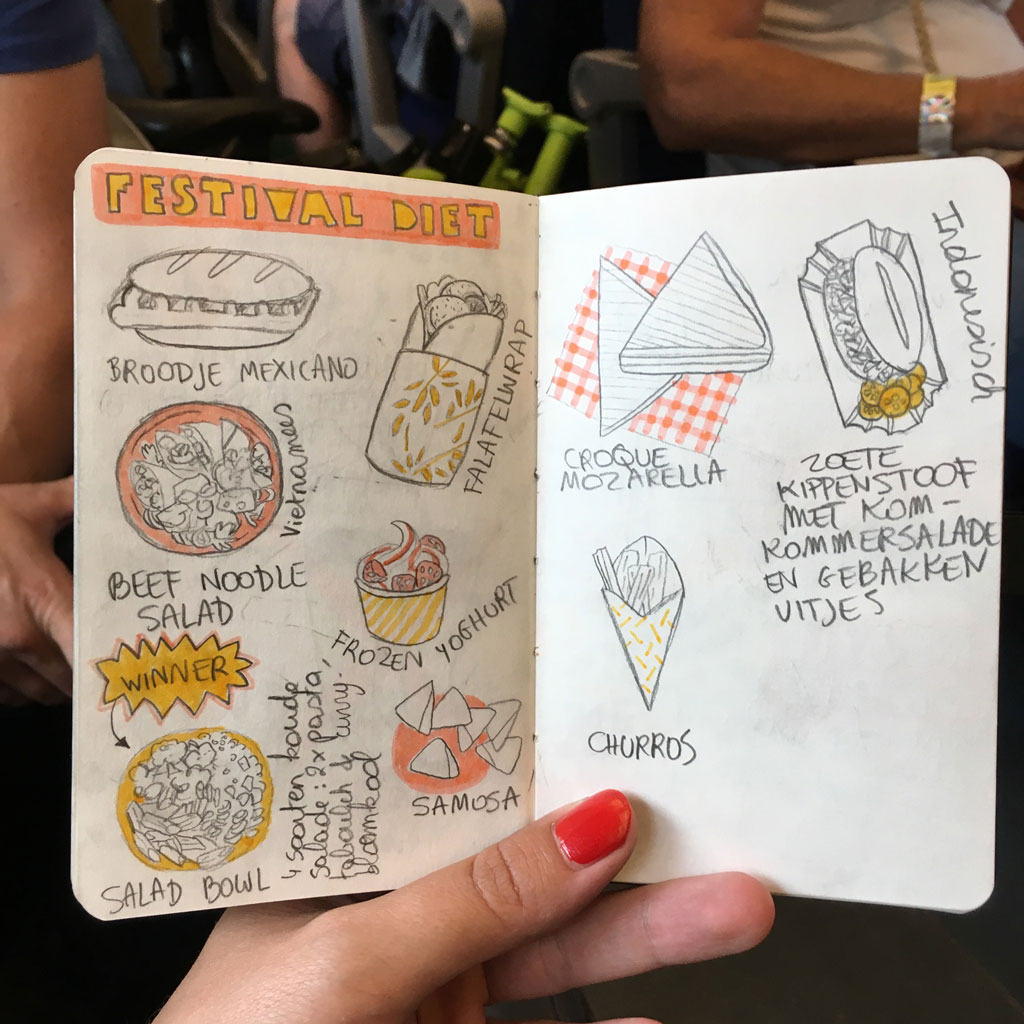 FESTIVAL DIET
BROODJE MEXICANO
FALAFELWRAP
Vietnamees
BEEF NOODLE
SALAD
FROZEN YOGHURT
WINNER
4 soorten koude
salade: 2x pasta,
tabouleh & curry-
bloemkool
SALAD BOWL
SAMOSA
CROQUE
MOZARELLA
Indonesisch
ZOETE
KIPPENSTOOF
MET KOM-
KOMMERSALADE
EN GEBAKKEN
UITJES
CHURROS